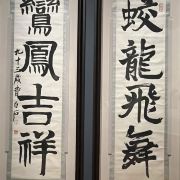 蛟龍飛舞
鸞鳳吉祥
九十三歲
白石